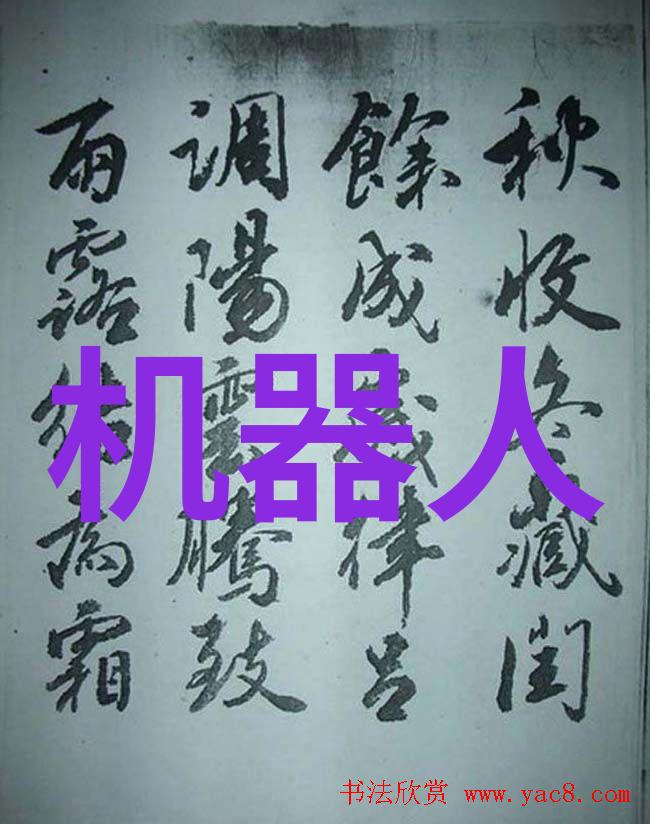 秋收冬藏閏
餘成歲律呂
調陽雲騰致
雨露結為霜
机器人
书法欣赏 www.yac8.com